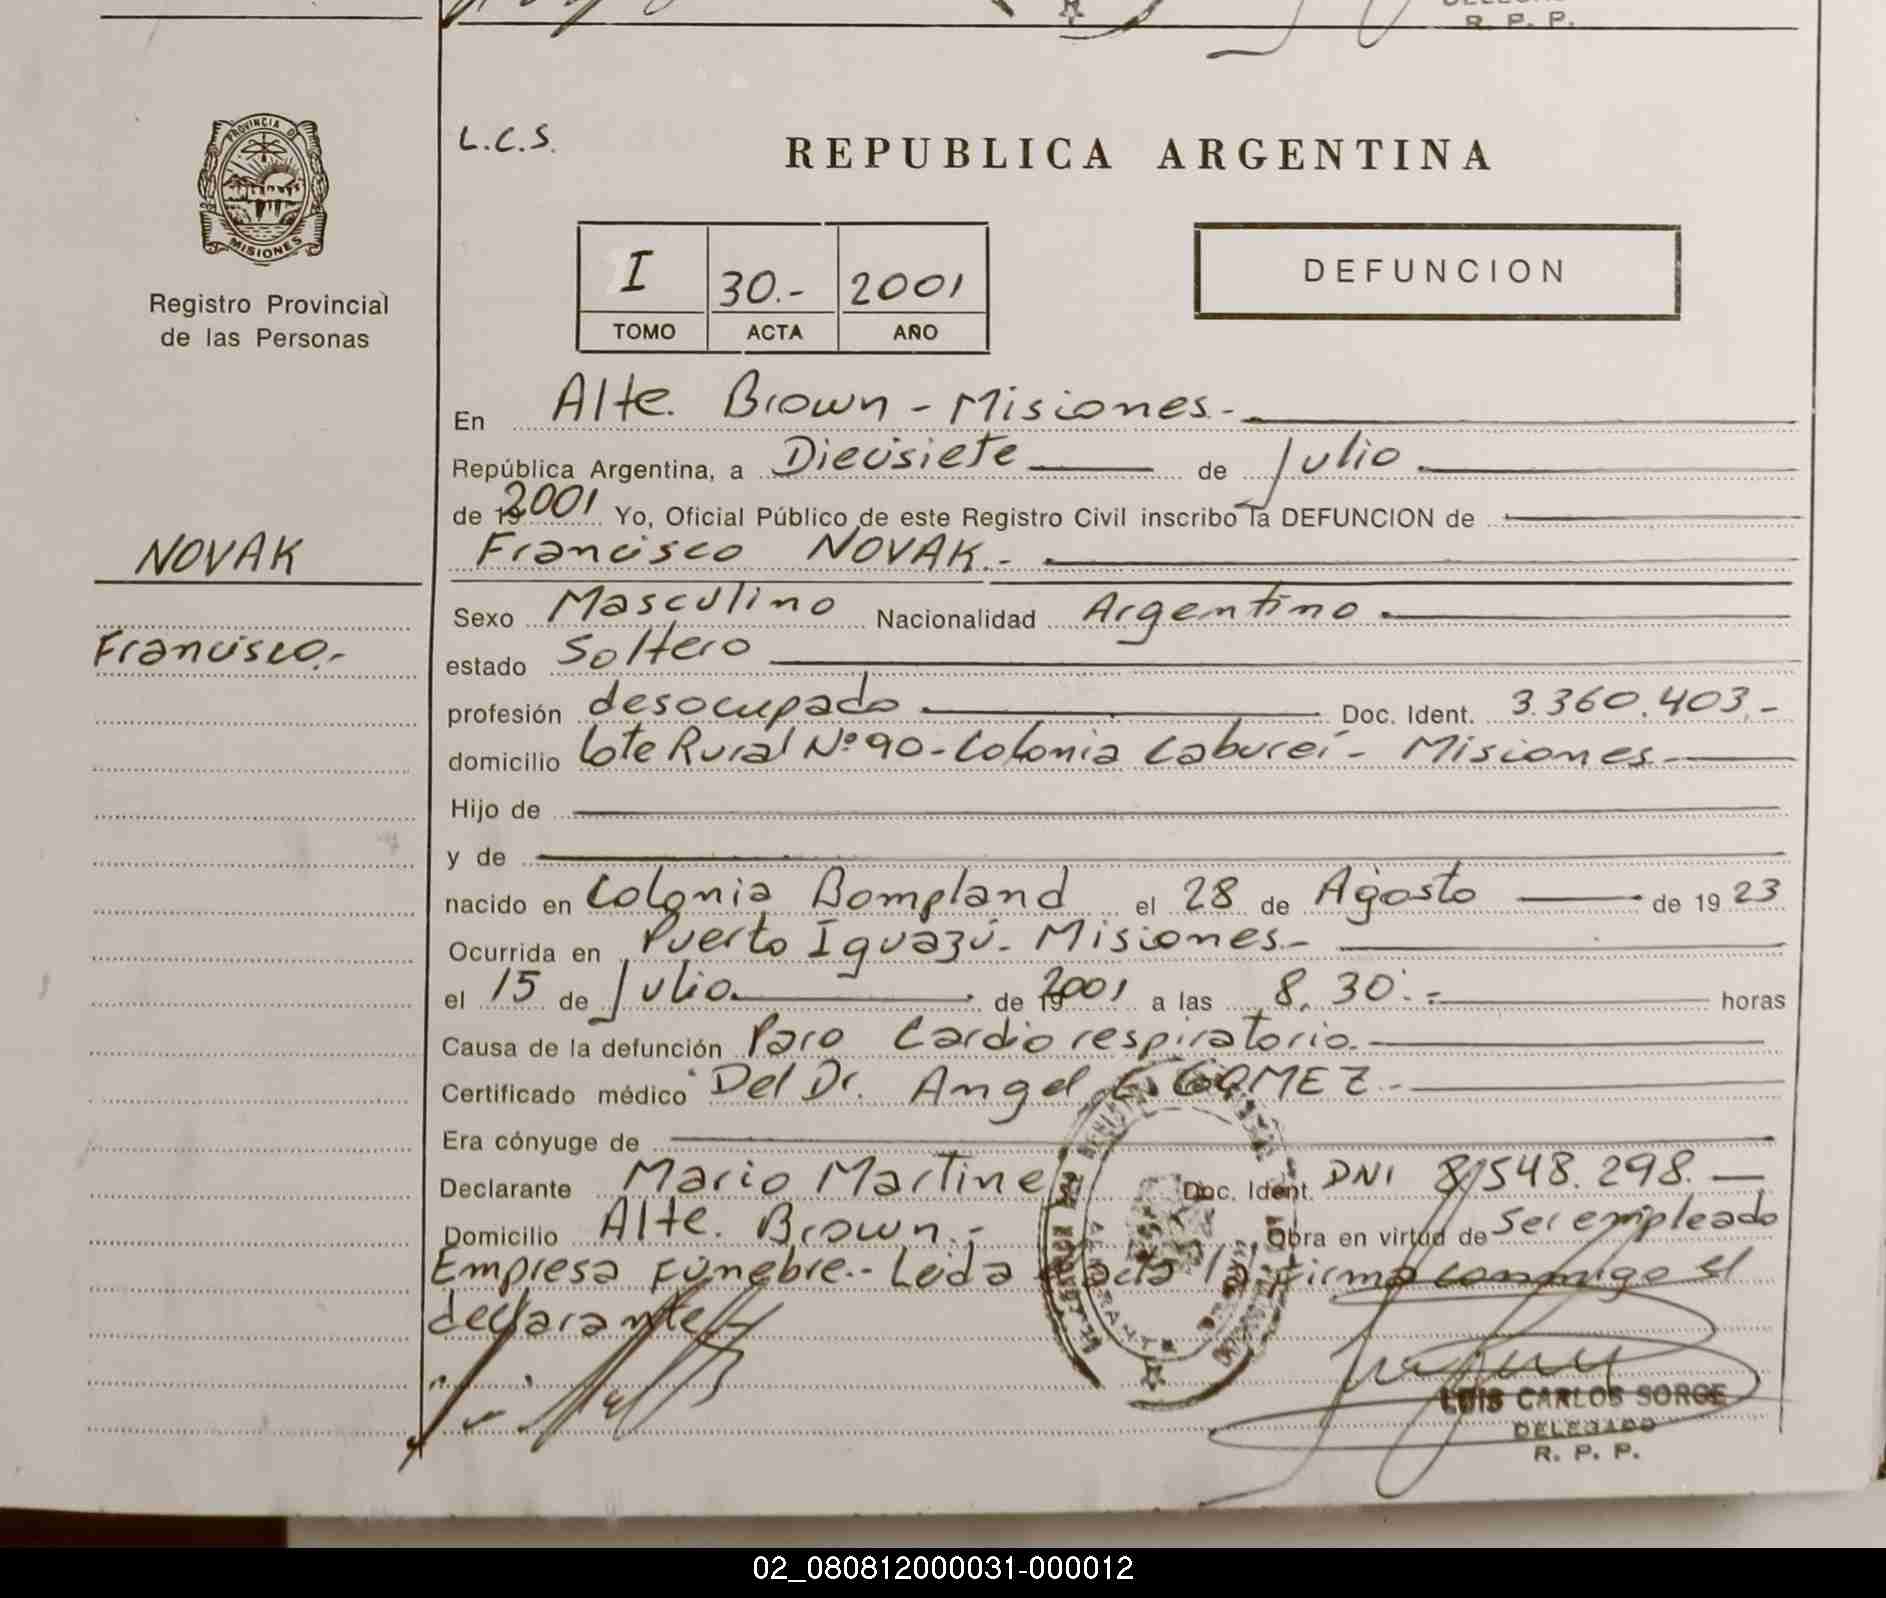 R. P. P.
PROVINCIA D
MISIONES
Registro Provincial
de las Personas
L.C.S.
REPUBLICA ARGENTINA
I 30.- 2001
TOMO ACTA AÑO
DEFUNCION
En Alte. Brown - Misiones.-
República Argentina, a Diecisiete de Julio
de 19 2001 Yo, Oficial Público de este Registro Civil inscribo la DEFUNCION de
NOVAK
Francisco NOVAK.-
Sexo Masculino Nacionalidad Argentino
Francisco.-
estado Soltero
profesión desocupado Doc. Ident. 3.360.403.-
domicilio Lote Rural Nº 90 - Colonia Cabureí - Misiones.
Hijo de
y de
nacido en Colonia Bompland el 28 de Agosto de 19 23
Ocurrida en Puerto Iguazú - Misiones.-
el 15 de Julio. de 19 2001 a las 8,30.- horas
Causa de la defunción Paro Cardio respiratorio.
Certificado médico Del Dr. Angel GOMEZ.-
Era cónyuge de
Declarante Mario Martinez Doc. Ident. DNI 8.548.298.
Domicilio Alte. Brown.- Obra en virtud de Ser empleado
Empresa Fúnebre.- Leida el acta la firma conmigo el
declarante.-
LUIS CARLOS SORGE
DELEGADO
R. P. P.
02_080812000031-000012